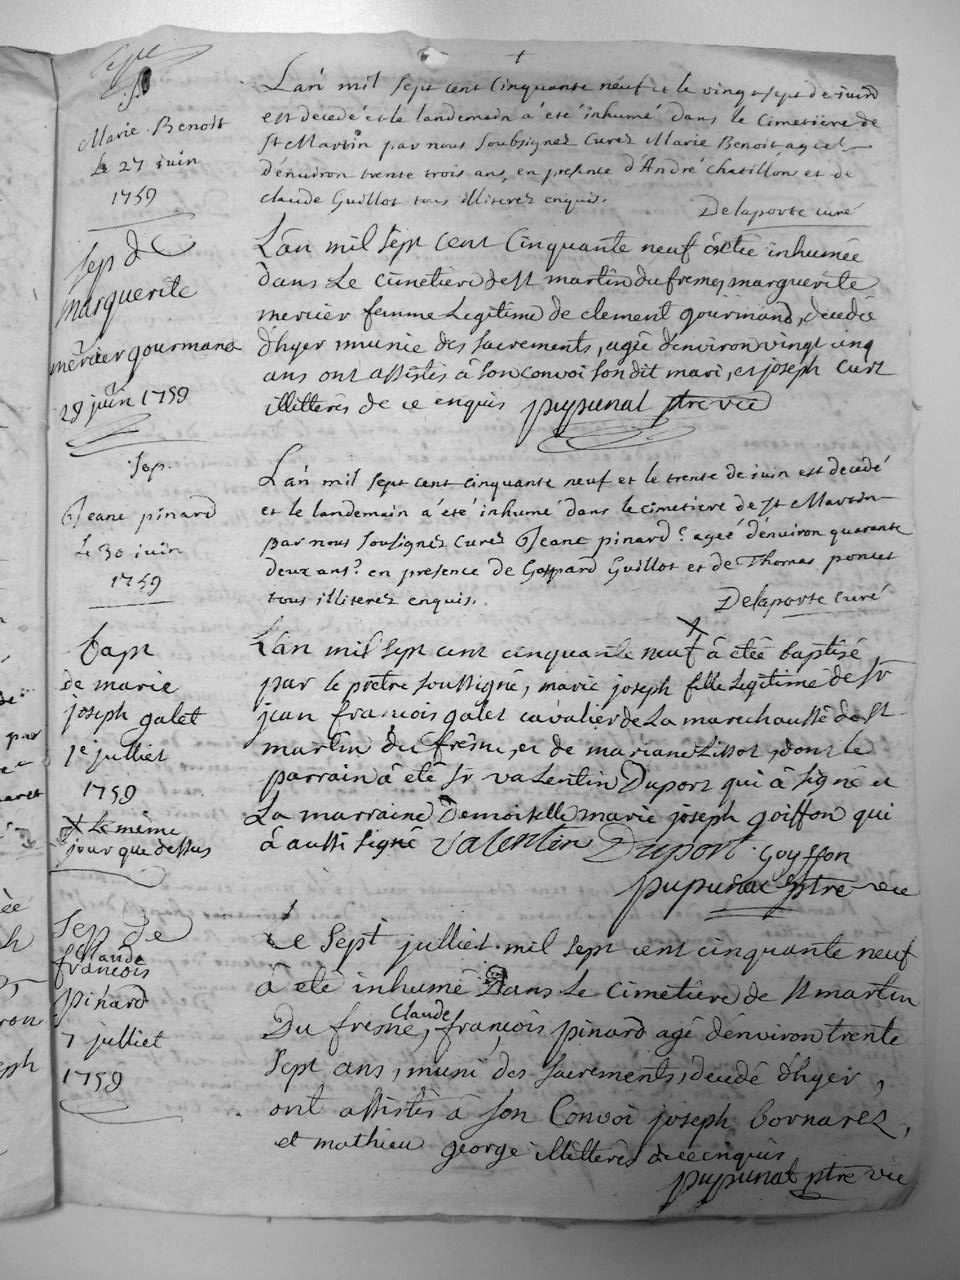 Sept
Marie Benoit
le 27 juin
1759
Lan mil sept cent cinquante neuf et le vingt sept de juin
est decedé et le landemain à été inhumé dans le cimetiere de
st Martin par nous soubsignez curez Marie Benoit, agée
d'énviron trente trois ans, en présence d'André chatillon et de
claude Guillot tous illiterez enquis.
Delaporte curé
sep de
marguerite
mercier gourmand
29 juin 1759
Lan mil sept cent cinquante neuf à été inhumée
dans Le cimetiere de st martin du fresne, marguerite
mercier femme Legitime de clement gourmand, decedée
d'hyer munie des sacrements, agée d'environ vingt cinq
ans ont assistés à son convoi son dit mari, et joseph curt
illitterés de ce enquis pupunat ptre vic
Sep.
Jeane pinard
Le 30 juin
1759
Lan mil sept cent cinquante neuf et le trente de juin est decédé
et le landemain à été inhumé dans le cimetiere de st Martin
par nous soussignez curez Jeane pinard? ageé d'énviron quarante
deux ans? en présence de Gaspard Guillot et de Thomas poncet
tous illiterez enquis.
Delaporte curé
bapt
de marie
joseph galet
1e julliet
1759
X Le même
jour que dessus
X
Lan mil sept cent cinquante neuf à étée baptisé,
par le prêtre soussigné, marie joseph fille Legitime de sr
jean françois galet cavalier de La marechaussée de st
martin du fresne, et de mariane Lissot, dont le
parrain à été sr valentin Duport qui à signé et
La marraine Demoiselle marie joseph goiffon qui
à aussi signé valentin Duport goyffon
pupunat ptre vic
Sep de
claude
francois
pinard
7 julliet
1759
Le sept julliet mil sept cent cinquante neuf
à été inhumé Dans Le cimetiere de st martin
claude
Du fresne, françois pinard agé d'énviron trente
sept ans, muni des sacrements, decedé d'hyer,
ont assistés à son Convoi joseph bornarez,
et mathieu george illitterés de ce enquis
pupunat ptre vic